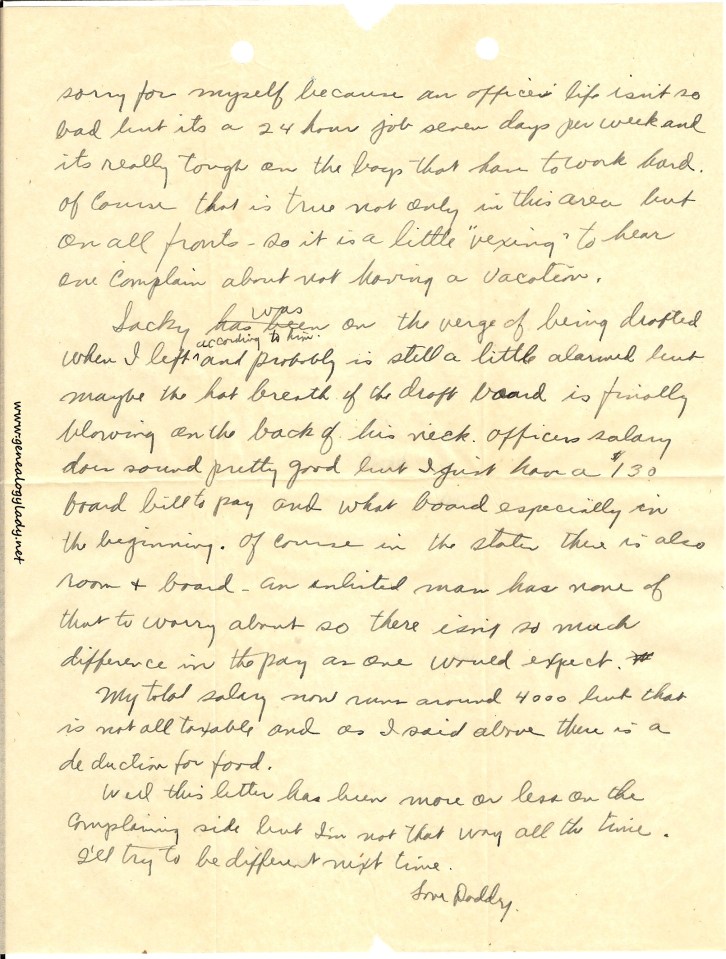 sorry for myself because an officers life isn't so
bad but its a 24 hour job seven days per week and
its really tough on the boys that have to work hard.
Of course that is true not only in this area but
on all fronts - so it is a little "vexing" to hear
one complain about not having a vacation.
was
Lacky has been on the verge of being drafted
according to him.
when I left ^ and probably is still a little alarmed but
maybe the hot breath of the draft board is finally
blowing on the back of his neck. Officers salary
does sound pretty good but I just have a $130
board bill to pay and what board especially in
the beginning. Of course in the states there is also
room + board - an enlisted man has none of
that to worry about so there isn't so much
difference in the pay as one would expect.
My total salary now runs around 4000 but that
is not all taxable and as I said above there is a
deduction for food.
Well this letter has been more or less on the
complaining side but I'm not that way all the time.
I'll try to be different next time.
Love Daddy.
www.genealogylady.net